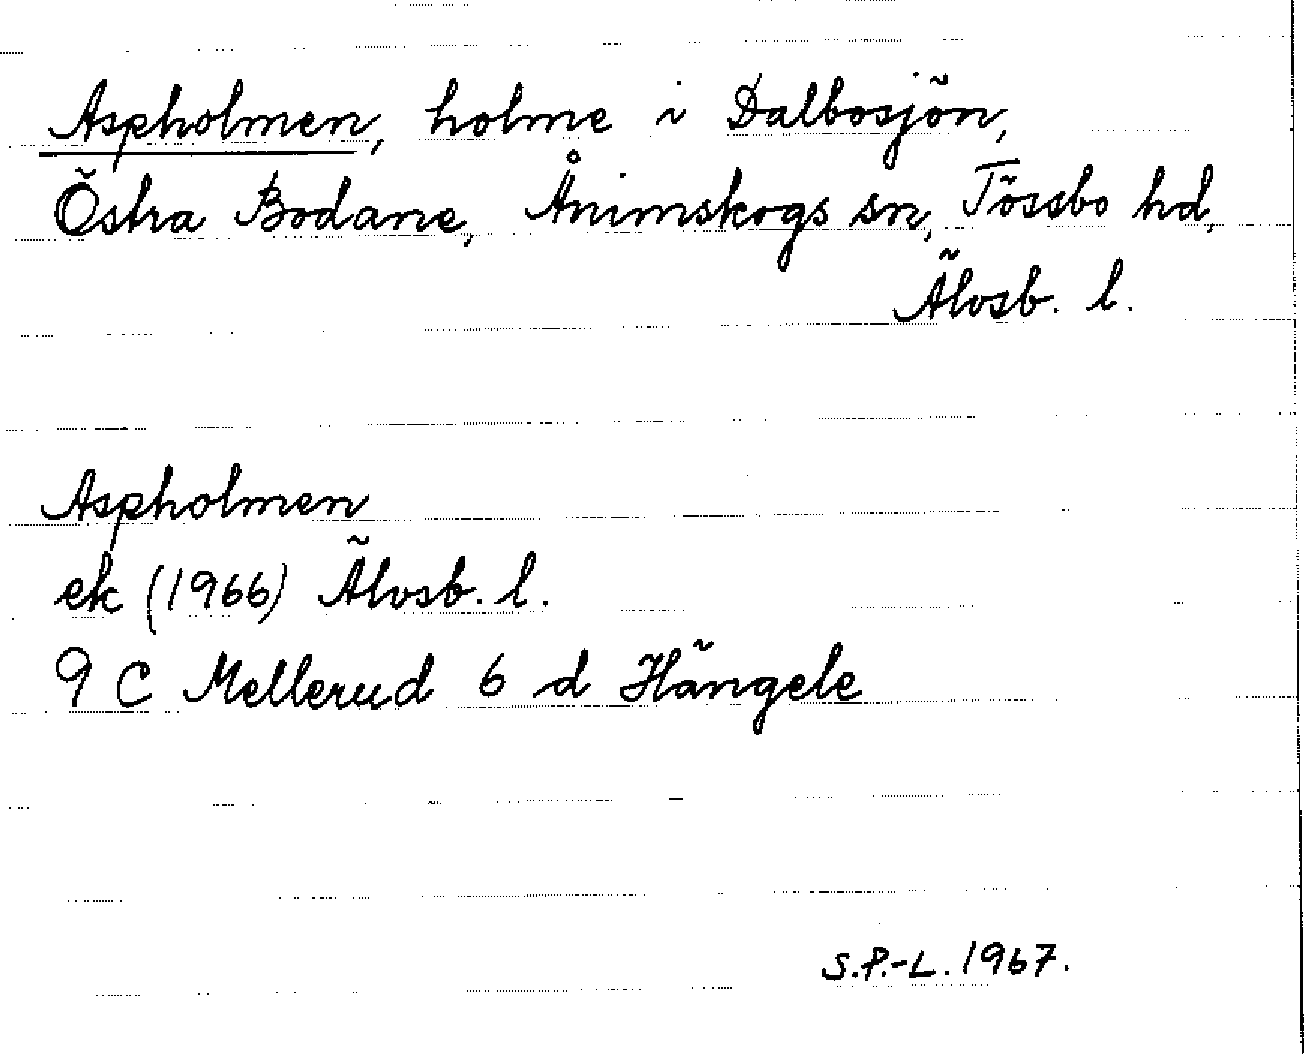 Aspholmen, holme i Dalbosjön,
Östra Bodane, Ånimskogs sn, Tössbo hd,
Älvsb. l.
Aspholmen
ek (1966) Älvsb. l.
9 C Mellerud 6 d Hängele
S.P.-L. 1967.